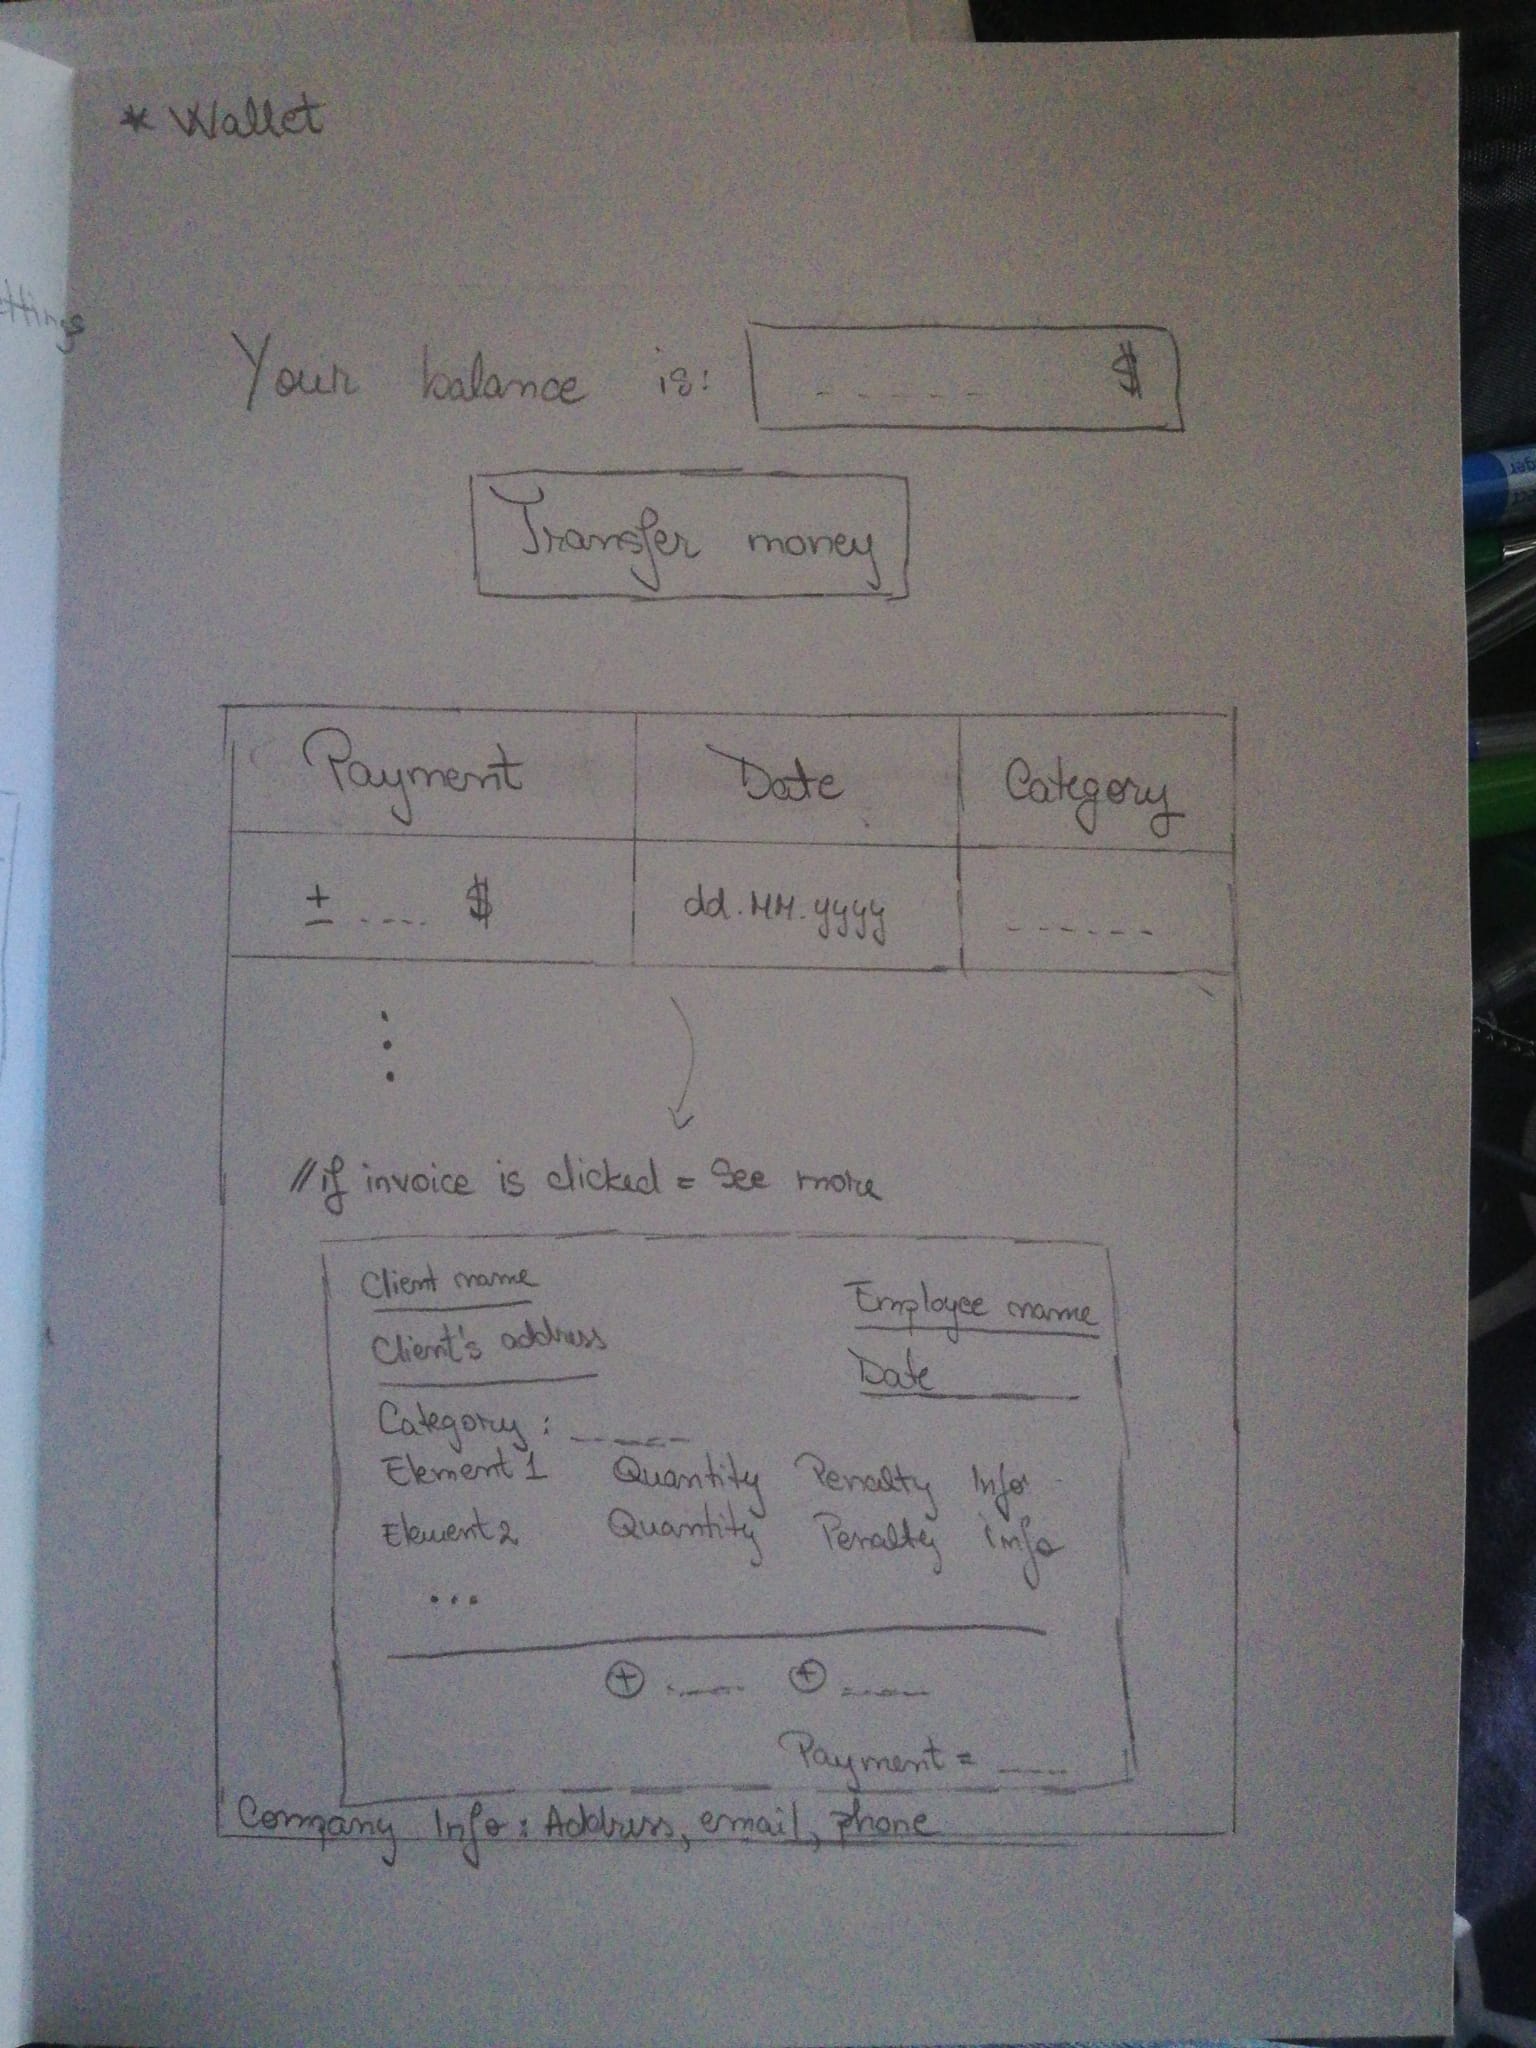 * Wallet
ettings
Your balance is: _ _ _ _ _ $
Transfer money
Payment Date Category
± _ _ _ _ $ dd.MM.yyyy _ _ _ _ _ _
//if invoice is clicked = See more
Client name Employee name
Client's address Date
Category: _ _ _ _ _
Element 1 Quantity Penalty Info
Element 2 Quantity Penalty info
...
⊕ _ _ _ _ ⊕ _ _ _ _
Payment = _ _ _ _
Company Info: Address, email, phone